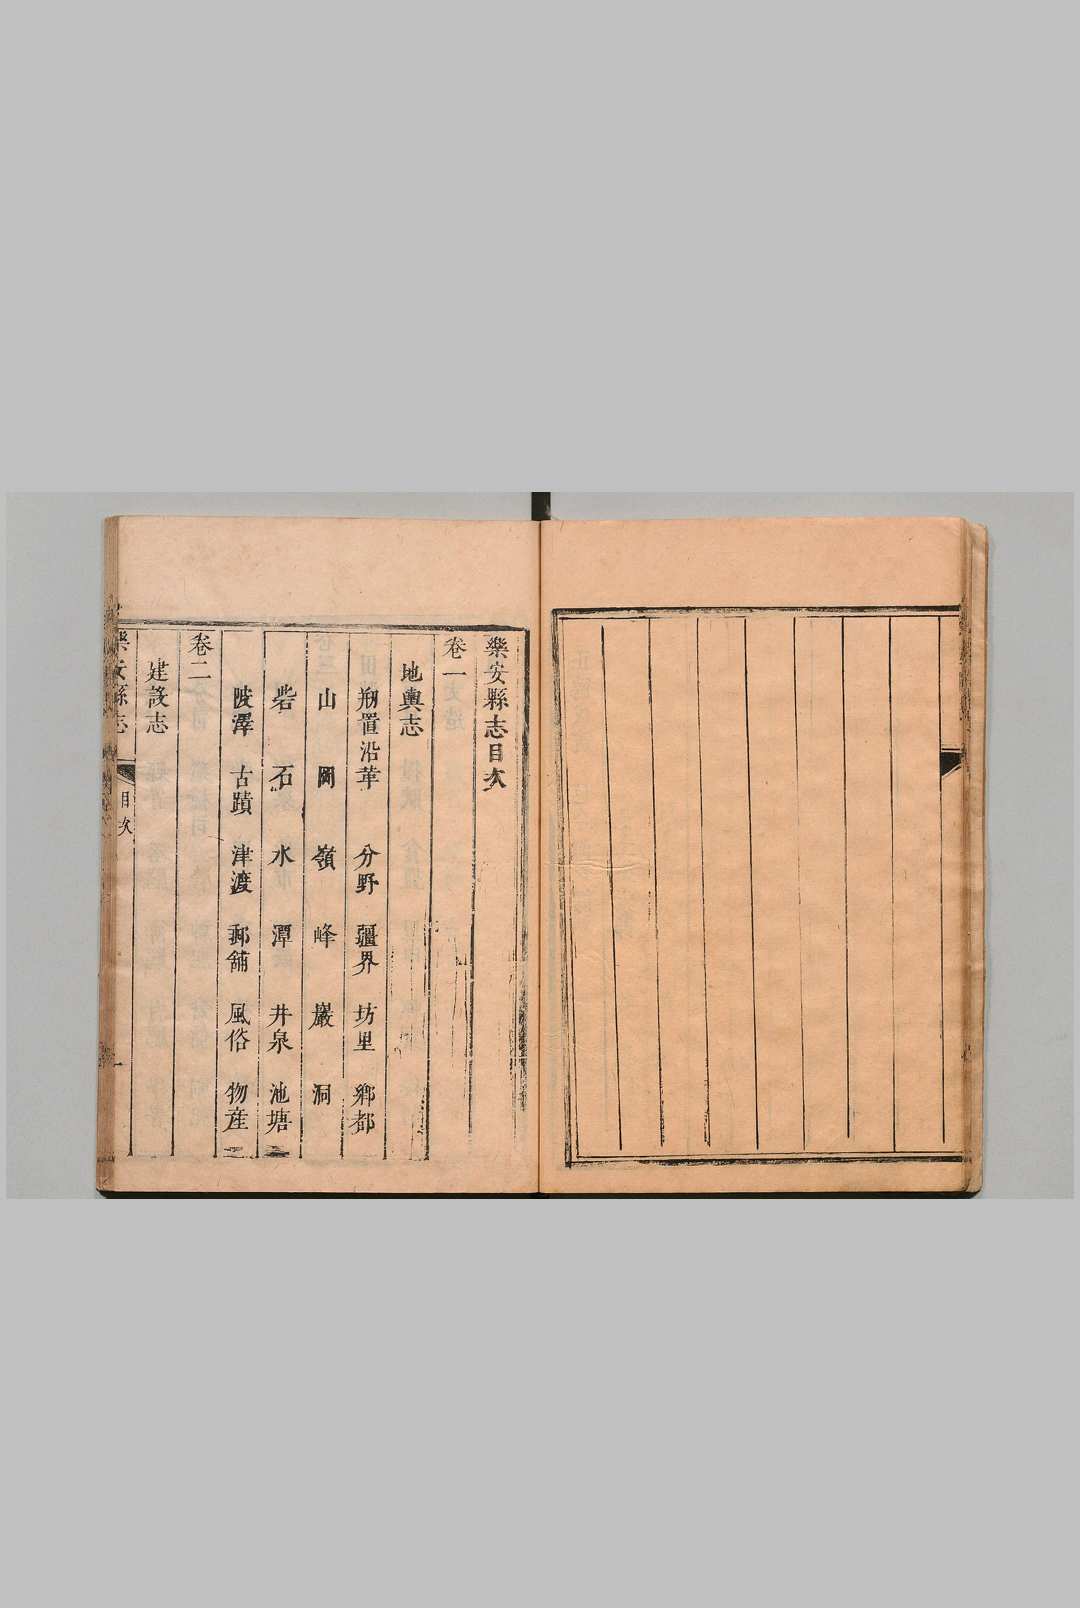 樂安縣志目次
卷一
地輿志
剏置沿革 分野 疆界 坊里 鄉都
山 岡 嶺 峰 巖 洞
砦 石 水 潭 井泉 池塘
陂澤 古蹟 津渡 郵舖 風俗 物產
卷二
建設志
樂安縣志 目次 一